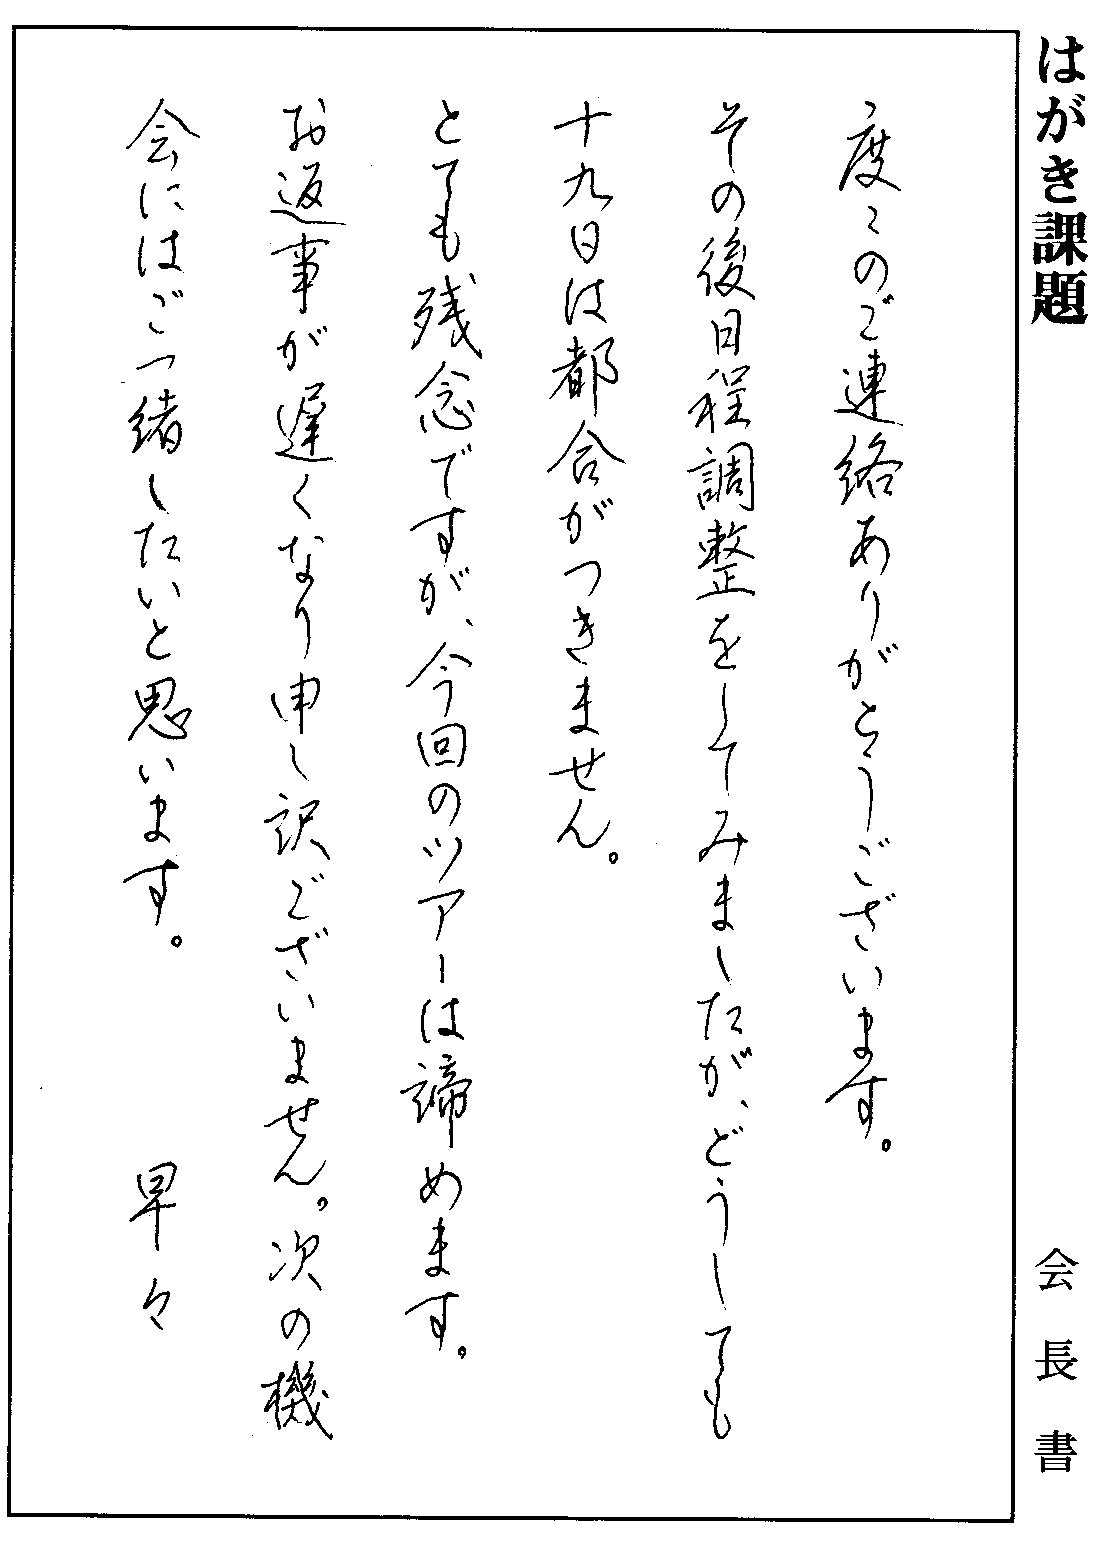 はがき課題
会長書
度々のご連絡ありがとうございます。
その後日程調整をしてみましたが、どうしても
十九日は都合がつきません。
とても残念ですが、今回のツアーは諦めます。
お返事が遅くなり申し訳ございません。次の機
会にはご一緒したいと思います。
早々